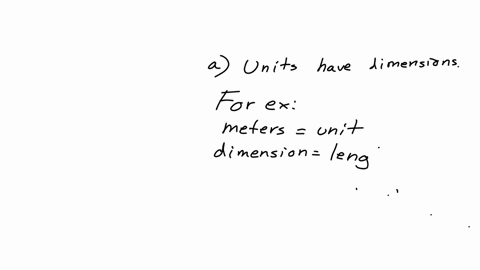 a) Units have dimensions.
For ex:
meters = unit
dimension = leng